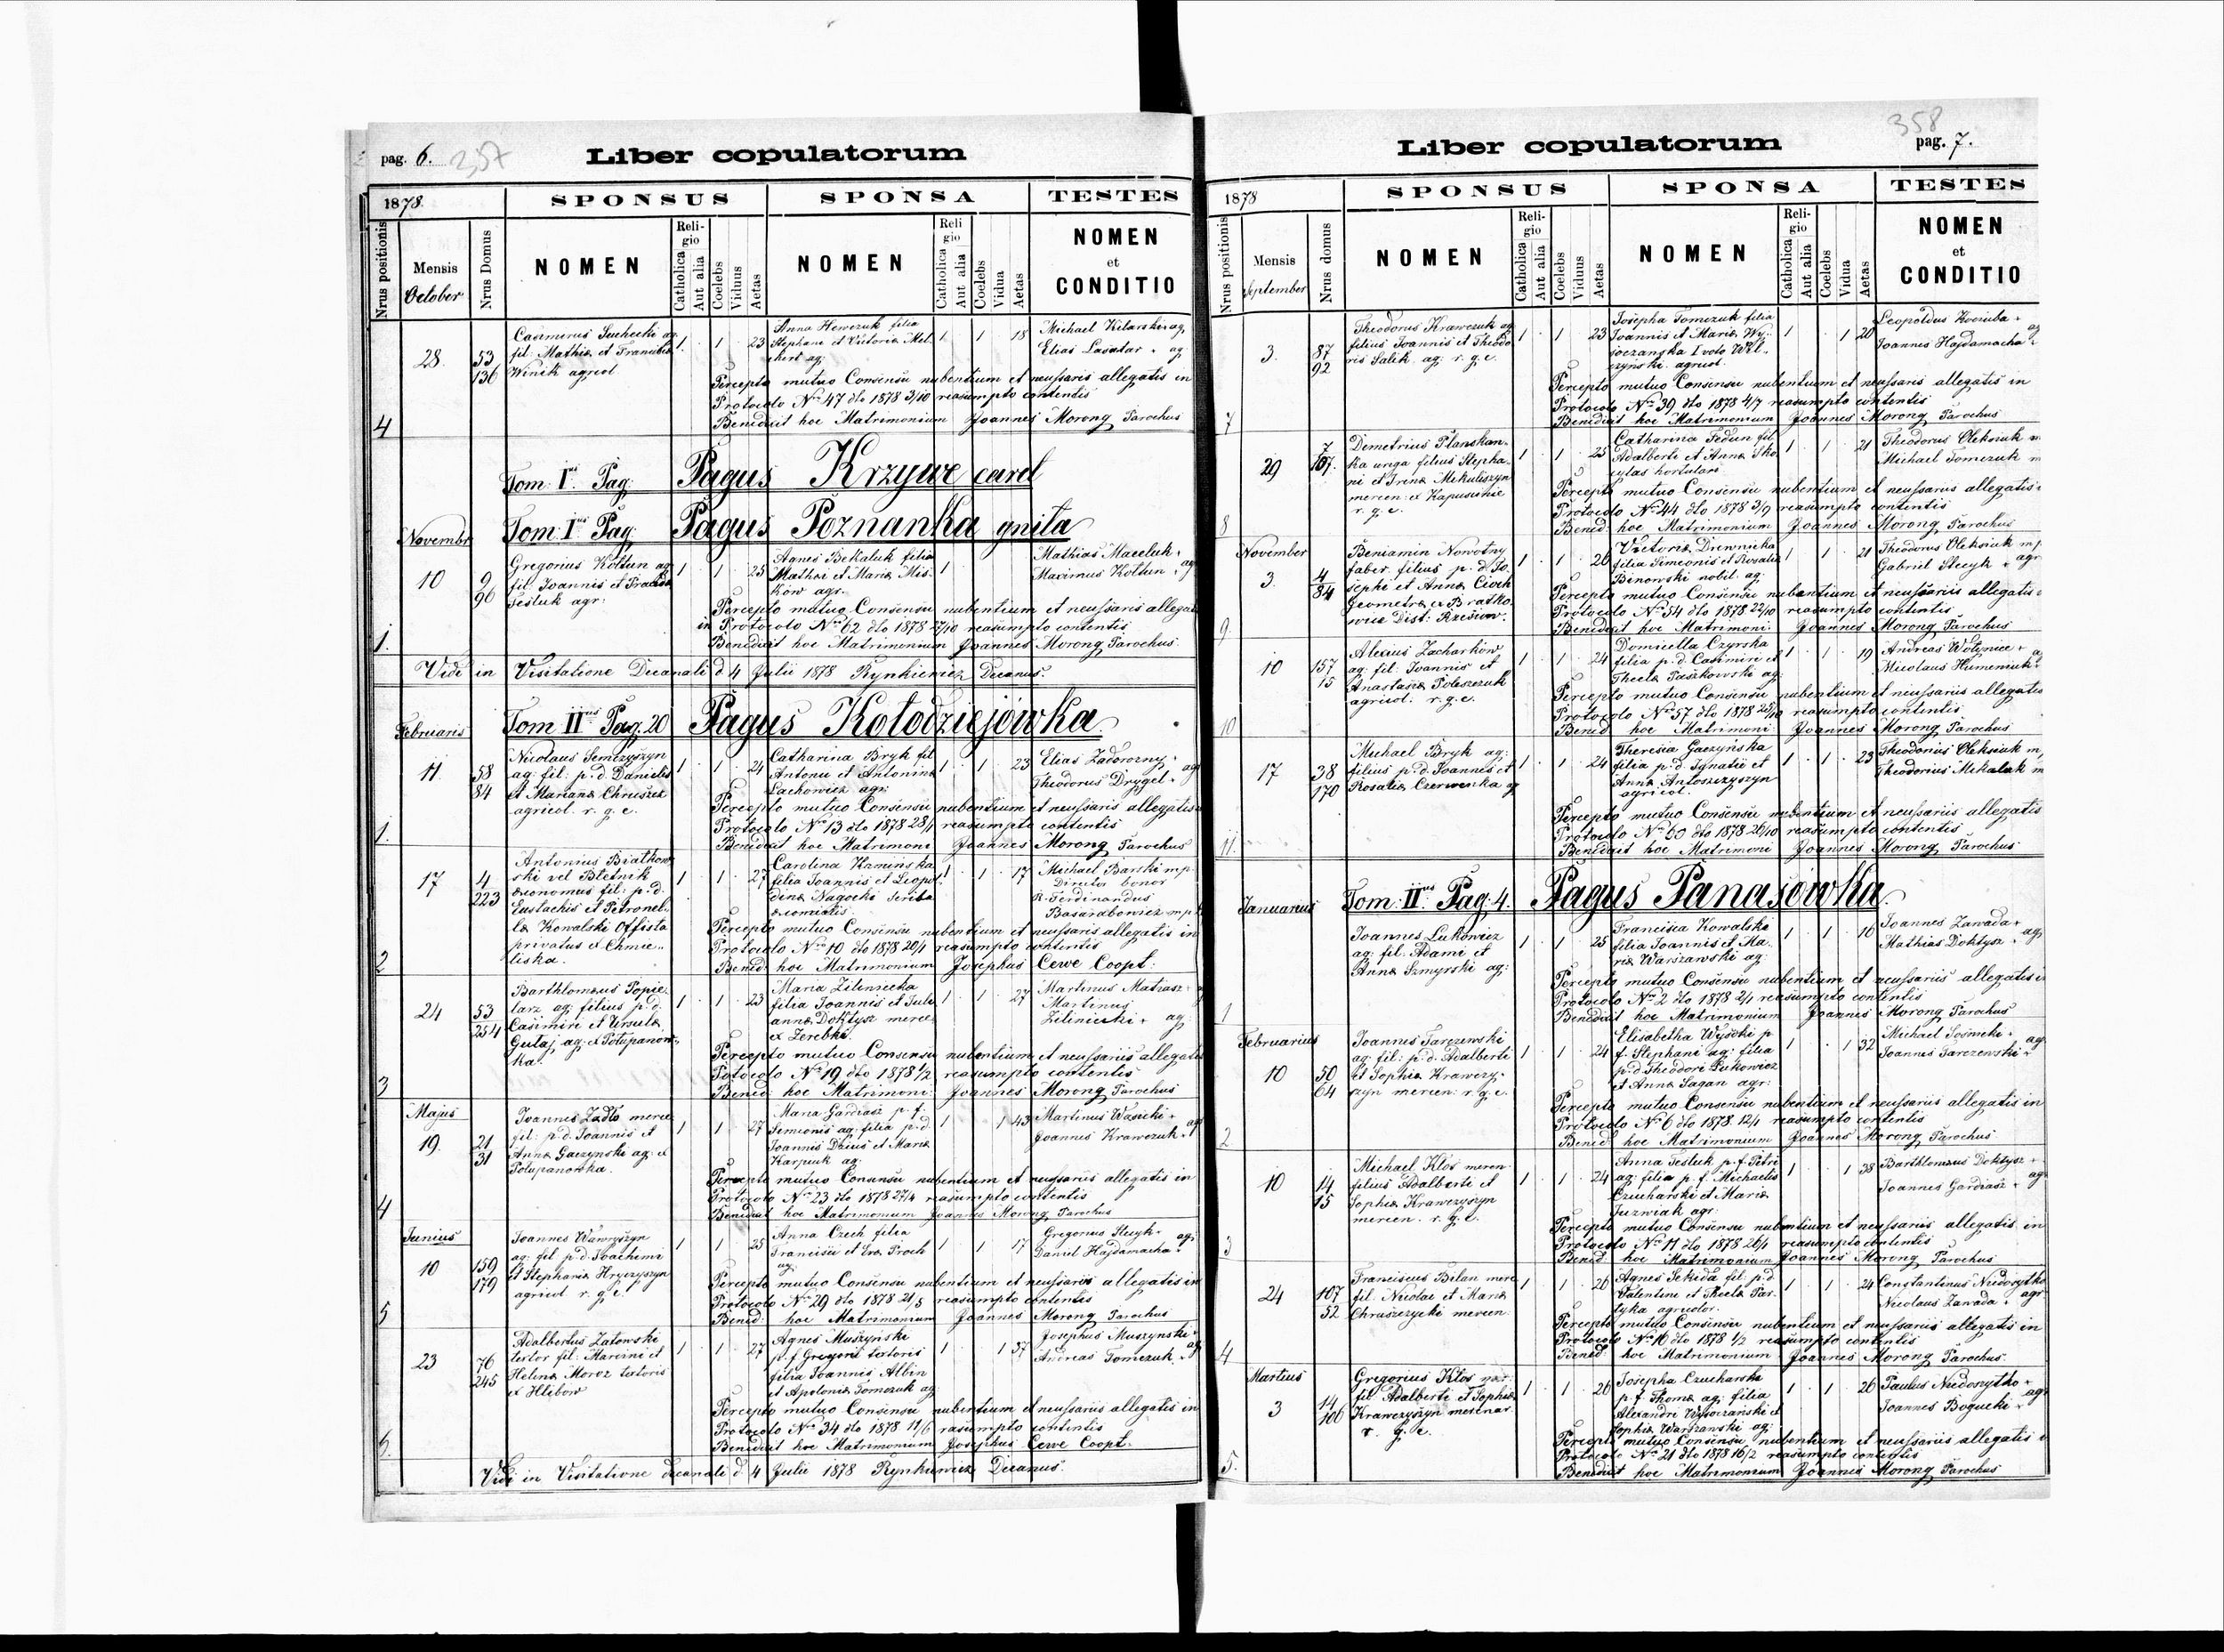 pag. 6. 257
Liber copulatorum
1878.
SPONSUS
SPONSA
TESTES
Nrus positionis
Mensis
October
Nrus Domus
NOMEN
Religio
Catholica
Aut alia
Coelebs
Viduus
Aetas
NOMEN
Religio
Catholica
Aut alia
Coelebs
Vidua
Aetas
NOMEN
et
CONDITIO
4
28
53
136
Casimirus Suchecki ag
fil: Mathiæ et Franciscæ
Winik agricol
1 1 23
Anna Hewczuk filia
Stephani et Victoriæ
ag:
1 1 18
Michael Kilarski + ag
Elias Lasatar + ag
Percepto mutuo Consensu nubentium et necessariis allegatis in
Protocolo Nro 47 dto 1878 3/10 reasumpto contentis
Benedixit hoc Matrimonium Joannes Morong Parochus
Tom: Ius Pag: Pagus Krzywe
Novembr
Tom: Ius Pag: Pagus Poznanka gnita
1.
10
9
96
Gregorius Koltun ag
fil. Joannis et
Tesluk agr:
1 1 25
Agnes Bekaluk filia
Mathei et Mariæ Mis-
kow agr.
1
Mathias Maceluk +
Maximus Koltun + ag
Percepto mutuo Consensu nubentium et necessariis allegatis
in Protocolo Nro 62 dto 1878 27/10 reasumpto contentis
Benedixit hoc Matrimonium Joannes Morong Parochus.
Vidi in Visitatione Decanali d 4 Julii 1878 Rynkiewicz Decanus.
Februaris
Tom IIus Pag. 20 Pagus Kołodziejówka
1.
11
58
84
Nicolaus Semczyszyn
ag: fil: p.d. Danielis
et Mariannæ Chruszcz
agricol. r. g. c.
1 1 24
Catharina Bryk fil
Antonii et Antoninæ
Lachowicz agr:
1 1 23
Elias Zadorozny +
Theodorus Drygel + ag
Percepto mutuo Consensu nubentium et necessariis allegatis
Protocolo Nro 13 dto 1878 28/1 reasumpto contentis
Benedixit hoc Matrimoni Joannes Morong Parochus
2
17
4
223
Antonius Białkow-
ski vel Bletnik
œconomus fil: p.d.
Eustachii et Petronel-
læ Kowalski Offista
privatus ex Chmie-
liska.
1 1 27
Carolina Kamińska
filia Joannis et Leopol-
dinæ Nagocki scriba
1 1 17
Michael Barski mp.
Director bonor
R. Ferdinandus
Basarabowicz mp.
Percepto mutuo Consensu nubentium et necessariis allegatis in
Protocolo Nro 10 dto 1878 20/1 reasumpto contentis
Bened: hoc Matrimonium Josephus Cewe Coopt:
3
24
53
254
Barthlomæus Popie-
larz ag: filius p.d.
Casimiri et Ursulæ
Gulaj ag: ex Połupanow-
ka.
1 1 23
Maria Zilinicka
filia Joannis et Juli-
annæ Doktysz merce
ex Zerebki.
1 1 27
Martinus Matiasz +
Martinus
Zilinicki + ag
Percepto mutuo Consensu nubentium et necessariis allegatis
Potocolo Nro 19 dto 1878 1/2 reasumpto contentis
Bened: hoc Matrimoni: Joannes Morong Parochus
Majus
4
19.
21
31
Joannes Zadlo merce
fil: p.d. Joannis et
Annæ Gaczynski ag: ex
Połupanowka.
1 1 27
Maria Gardiasz p.f.
Semionis ag: filia p.d.
Joannis Dzius et Mariæ
Karpiuk ag:
1 1 43
Martinus Wasicki +
Joannes Krawczuk + ag
Percepto mutuo Consensu nubentium et necessariis allegatis in
Protocolo Nro 23 dto 1878 27/4 reasumpto contentis
Benedixit hoc Matrimonium Joannes Morong Parochus
Junius
5
10
159
179
Joannes Wawryszyn
ag: fil: p.d. Joachimi
et Stephaniæ Hryczyszyn
agricol r. g. c.
1 1 25
Anna Czech filia
Francisci et Evæ Proch
ag:
1 1 17
Gregorius Stecyk + ag:
Daniel Hajdamacha +
Percepto mutuo Consensu nubentium et necessariis allegatis in
Protocolo Nro 29 dto 1878 21/5 reasumpto contentis
Bened: hoc Matrimonium Joannes Morong Parochus
6.
23
76
245
Adalbertus Zatowski
textor fil: Marcini et
Helenæ Moroz textoris
ex Hlibow
1 1 27
Agnes Muszyński
p.f. Gregorii textoris
filia Joannis Albin
et Apoloniæ Tomczuk ag:
1 1 37
Josephus Muszynski +
Andreas Tomczuk + ag
Percepto mutuo Consensu nubentium et necessariis allegatis in
Protocolo Nro 34 dto 1878 11/6 rasumpto contentis
Benedixit hoc Matrimonium Josephus Cewe Coopt.
Vidi in Visitatione decanali d. 4 Julii 1878 Rynkiewicz Decanus.
358
Liber copulatorum
pag. 7.
1878
SPONSUS
SPONSA
TESTES
Nrus positionis
Mensis
September
Nrus domus
NOMEN
Religio
Catholica
Aut alia
Coelebs
Viduus
Aetas
NOMEN
Religio
Catholica
Aut alia
Coelebs
Vidua
Aetas
NOMEN
et
CONDITIO
7
3.
87
92
Theodorus Krawczuk ag
filius Joannis et Theodo-
ris Salik ag: r. g. c.
1 1 23
Josepha Tomczuk filia
Joannis et Mariæ Wy-
soczańska I voto Wil-
czyński agricol.
1 1 20
Leopoldus Kociuba +
Joannes Hajdamacha + ag
Percepto mutuo Consensu nubentium et necessariis allegatis in
Protocolo Nro 39 dto 1878 4/7 reasumpto contentis
Benedixit hoc Matrimonium Joannes Morong Parochus
8
29
7
107.
Demetrius Planskan-
ka unga filius Stepha-
ni et Irinæ Mikuliszyn
mercen: ex Kapuscince
r. g. c.
1 1 25
Catharina Fedun fil
Adalberti et Annæ Sko-
cylas hortulani
1 1 21
Theodorus Oleksiuk m
Michael Tomczuk m
Percepto mutuo Consensu nubentium et necessariis allegatis
Protocolo Nro 44 dto 1878 3/9 reasumpto contentis
Bened: hoc Matrimonium Joannes Morong Parochus
November
9.
3.
4
84
Beniamin Nowotny
faber. filius p. d. Jo-
sephi et Annæ Cioch
Geometræ ex Bratko-
wice Dist: Rzeszow.
1 1 26
Victoria Drewnicka
filia Simeonis et Rosaliæ
Binowski nobil. ag:
1 1 21
Theodorus Oleksiuk mp
Gabriel Stecyk + agr
Percepto mutuo Consensu nubentium et necessariis allegatis
Protocolo Nro 54 dto 1878 22/10 reasumpto contentis
Benedixit hoc Matrimoni: Joannes Morong Parochus
10
10
157
15
Alexius Zacharków
ag: fil: Joannis et
Anastasiæ Poleszczuk
agricol. r. g. c.
1 1 24
Domicella Czyrska
filia p. d. Casimiri et
Theclæ Paszkowski ag
1 1 19
Andreas Wołynice +
Nicolaus Humeniuk + a
Percepto mutuo Consensu nubentium et necessariis allegatis
Protocolo Nro 57 dto 1878 25/10 reasumpto contentis
Bened hoc Matrimoni Joannes Morong Parochus
11.
17
38
170
Michael Bryk ag:
filius p.d. Joannes et
Rosaliæ Czerwonka ag
1 1 24
Theresia Gaczyńska
filia p.d. Ignatii et
Annæ Antoszczyszyn
agricol.
1 1 23
Theodorius Oleksiuk m
Theodorius Mekaluk m
Percepto mutuo Consensu nubentium et necessariis allegatis
Protocolo Nro 60 dto 1878 26/10 reasumpto contentis
Benedixit hoc Matrimoni Joannes Morong Parochus
Januarius
Tom: IIus Pag: 4. Pagus Panasówka.
1
Joannes Lukowicz
ag: fil: Adami et
Annæ Szmyrski ag:
1 1 25
Francisca Kowalski
filia Joannis et Ma-
riæ Warszawski ag:
1 1 16
Joannes Zawada +
Mathias Doktysz + ag
Percepto mutuo Consensu nubentium et necessariis allegatis
Protocolo Nro 2 dto 1878 2/1 reasumpto contentis
Benedixit hoc Matrimonium Joannes Morong Parochus
Februarius
2
10
50
64
Joannes Tarczewski
ag: fil: p.d. Adalberti
et Sophiæ Krawczy-
szyn mercen: r. g. c.
1 1 24
Elisabetha Wysocki p.
f. Stephani ag: filia
p.d Theodori Lukowicz
et Annæ Sagan agr:
1 1 32
Michael Sosmeki +
Joannes Tarczewski + ag
Percepto mutuo Consensu nubentium et necessariis allegatis in
Protocolo Nro 6 dto 1878 12/1 reasumpto contentis
Bened hoc Matrimonium Joannes Morong Parochus
3
10
14
15
Michael Klos mercen:
filius Adalberti et
Sophiæ Krawczyszyn
mercen. r. g. c.
1 1 24
Anna Tesluk p. f. Petri
ag: filia p. f. Michaelis
Czucharski et Mariæ
Juzwiak agr:
1 1 38
Barthlomæus Doktysz +
Joannes Gardiasz + ag
Percepto mutuo Consensu nubentium et necessariis allegatis in
Protocolo Nro 11 dto 1878 26/1 reasumpto contentis
Bened: hoc Matrimonium Joannes Morong Parochus
4
24
107
52
Franciscus Bilan merc
fil: Nicolai et Mariæ
Chruszczycki mercen:
1 1 26
Agnes Sekida fil: p.d
Valentini et Theclæ Par-
tyka agricolor.
1 1 24
Constantinus Niedosytko
Nicolaus Zawada + agr
Percepto mutuo Consensu nubentium et necessariis allegatis in
Protocolo Nro 16 dto 1878 1/2 reasumpto contentis
Bened: hoc Matrimonium Joannes Morong Parochus.
Martius
5.
3
14
106
Gregorius Kłos
fil Adalberti et Sophiæ
Krawczyszyn mercenar.
r. g. c.
1 1 26
Josepha Czucharska
p. f. Thomæ ag: filia
Alexandri Wysoczański et
Sophiæ Warszawski ag:
1 1 26
Paulus Niedosytko +
Joannes Bogucki + agr
Percepto mutuo Consensu nubentium et necessariis allegatis
Protocolo Nro 21 dto 1878 16/2 reasumpto contentis
Benedixit hoc Matrimonium Joannes Morong Parochus